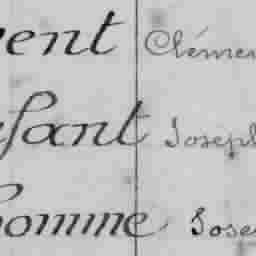 vent Clémen
nfant Joseph
homme Jose